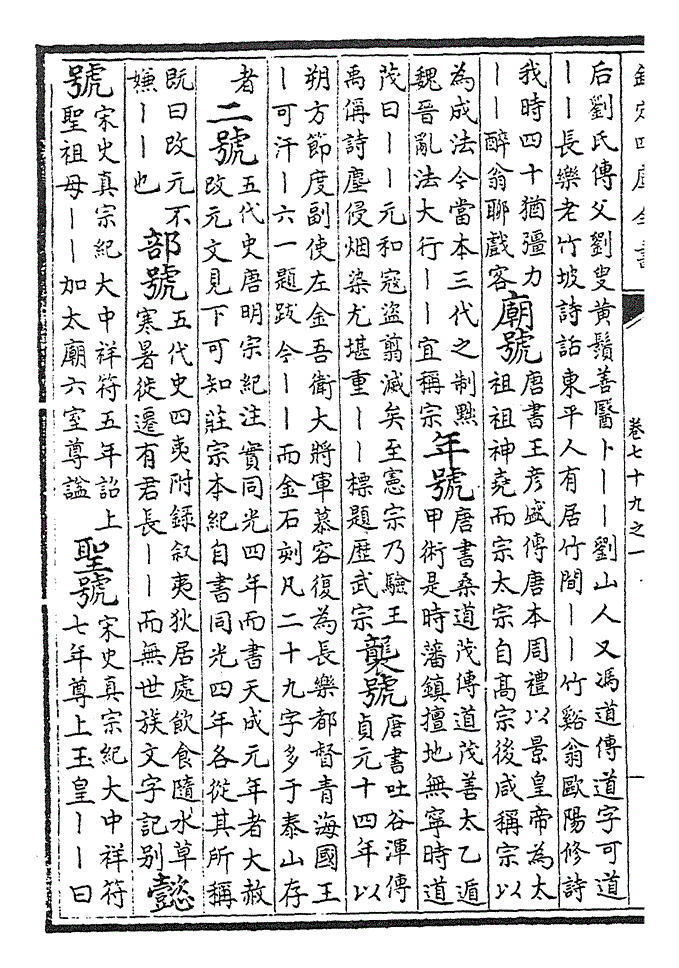 欽定四庫全書
卷七十九之一
后劉氏傳父劉叟黃鬚善醫卜丨丨劉山人又馮道傳道字可道
丨丨長樂老竹坡詩話東平人有居竹間丨丨竹谿翁歐陽修詩
我時四十猶彊力
丨丨醉翁聊戲客
廟號
唐書王彦盛傳唐本周禮以景皇帝為太
祖祖神堯而宗太宗自髙宗後咸稱宗以
為成法今當本三代之制黜
魏晉亂法大行丨丨宜稱宗
年號
唐書桑道茂傳道茂善太乙遁
甲術是時藩鎮擅地無寧時道
茂曰丨丨元和寇盗翦滅矣至憲宗乃驗王
禹偁詩塵侵烟染尤堪重丨丨標題歴武宗
襲號
唐書吐谷渾傳
貞元十四年以
朔方節度副使左金吾衛大將軍慕容復為長樂都督青海國王
丨可汗丨六一題跋今丨丨而金石刻凡二十九字多于泰山存
者
二號
五代史唐明宗紀注實同光四年而書天成元年者大赦
改元文見下可知莊宗本紀自書同光四年各從其所稱
既曰改元不
嫌丨丨也
部號
五代史四夷附録叙夷狄居處飲食隨水草
寒暑徙遷有君長丨丨而無世族文字記别
懿
號
宋史真宗紀大中祥符五年詔上
聖祖母丨丨加太廟六室尊謚
聖號
宋史真宗紀大中祥符
七年尊上玉皇丨丨曰